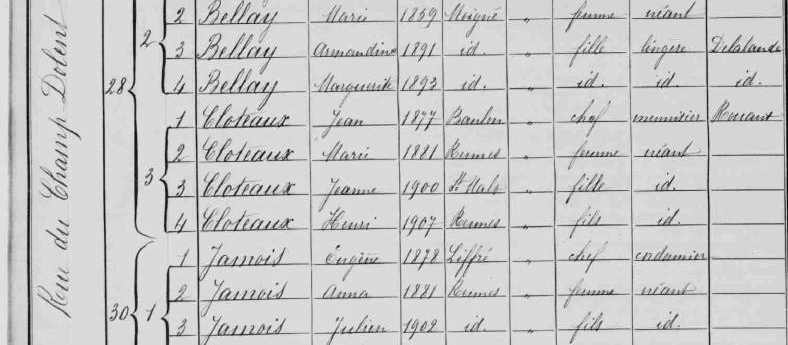 Rue du Champ Dolent
2 Bellay Marie 1859 Moigné " femme néant
2 3 Bellay Armandine 1891 id. " fille lingère Delalande
28 4 Bellay Marguerite 1893 id. " id. id. id.
1 Cloteaux Jean 1877 Baulon " chef menuisier
2 Cloteaux Marie 1881 Rennes " femme néant
3 3 Cloteaux Jeanne 1900 St Malo " fille id.
4 Cloteaux Henri 1907 Rennes " fils id.
1 Jamois Eugène 1878 Liffré " chef cordonnier
2 Jamois Anna 1881 Rennes " femme néant
30 1 3 Jamois Julien 1902 id. " fils id.